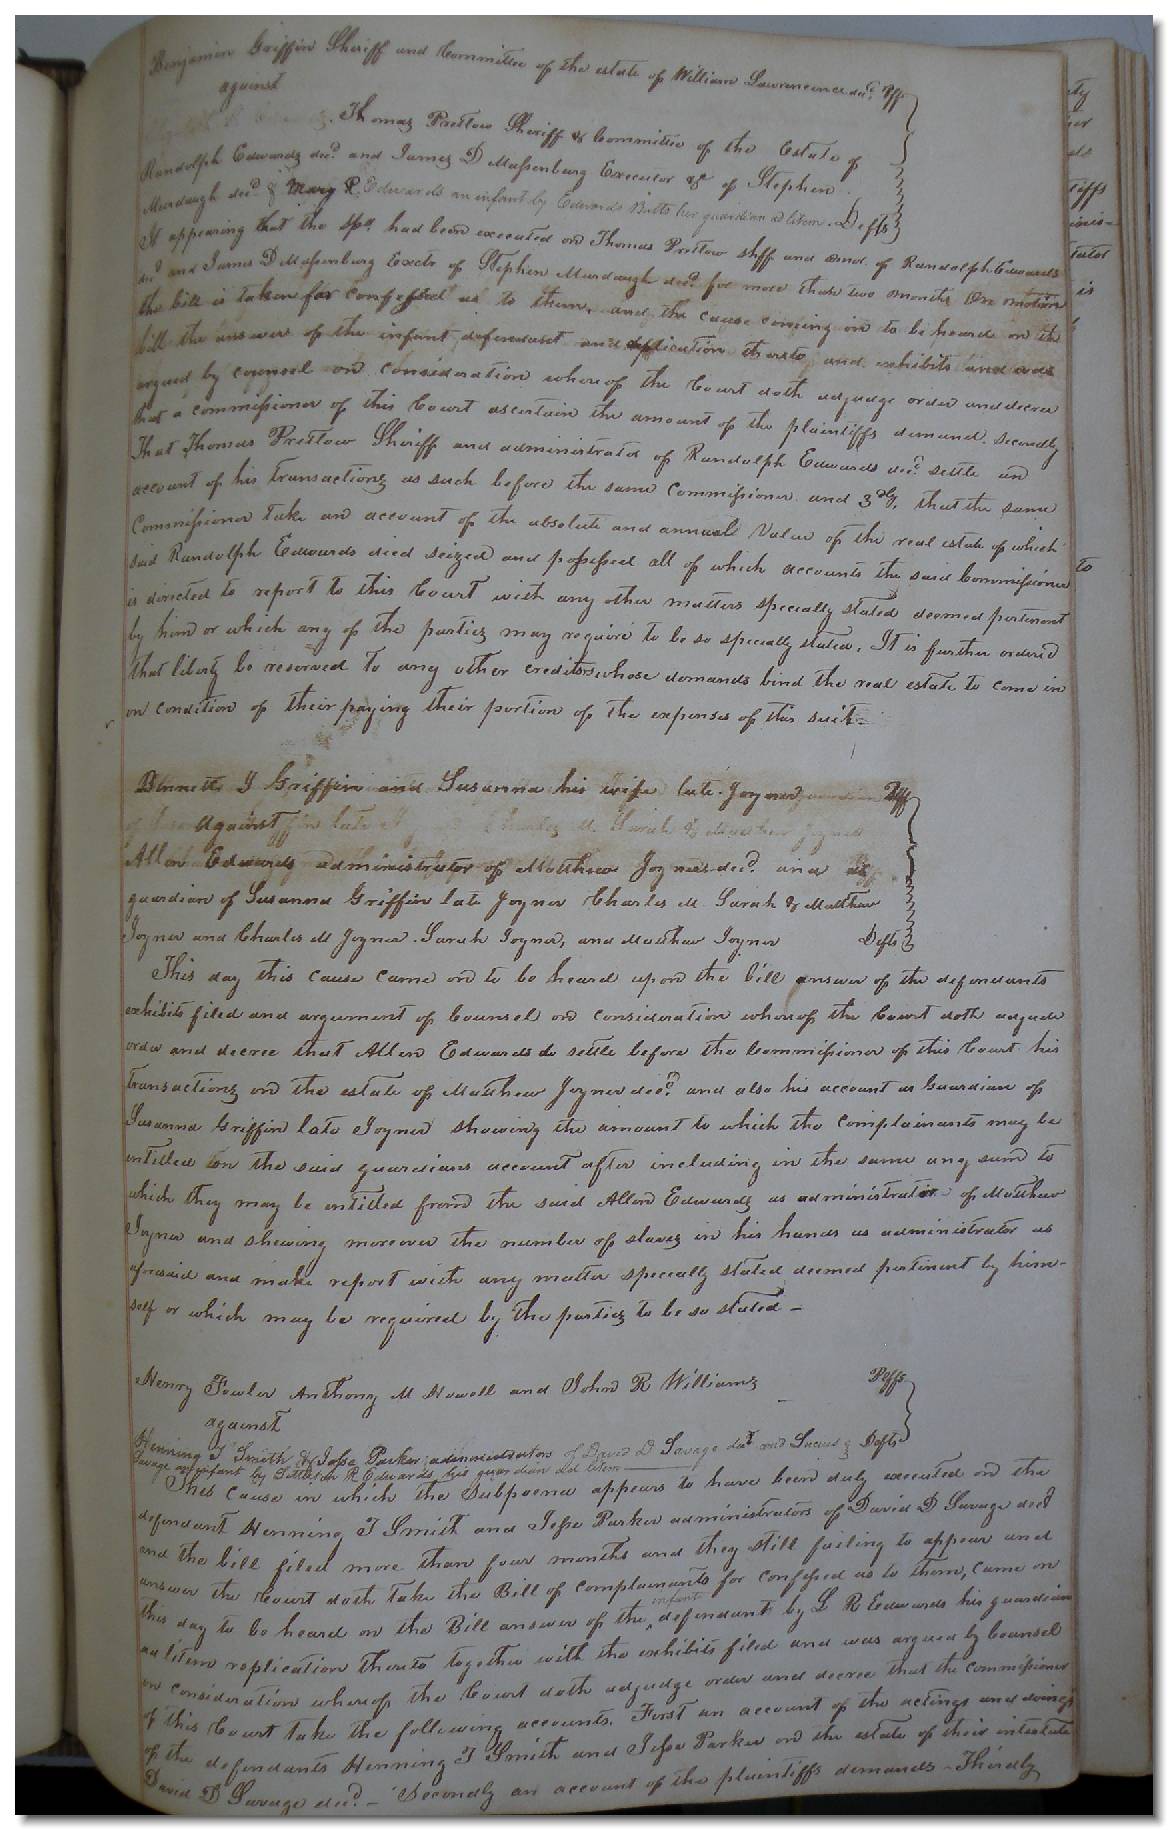 Benjamin Griffin Sheriff and Committee of the estate of William Lawrencence decd. Plff
against
Thomas Pretlow Sheriff & Committee of the Estate of
Randolph Edwards decd. and James D Massenburg Executor &c of Stephen
Murdaugh decd. & Mary P. Edwards an infant by Edwards Butts her guardian ad litem. Defts
It appearing that the spa. had been executed on Thomas Pretlow shff and admr. of Randolph Edwards
decd and James D Massenburg Exectr of Stephen Murdaugh decd. for more than two months One motion
the bill is taken for confessed as to them, and the cause coming on to be heard on the
bill the answer of the infant defendant and replication thereto and exhibits and was
argued by counsel on consideration whereof the Court doth adjudge order and decree
that a commissioner of this Court ascertain the amount of the plaintiffs demand. Secondly
That Thomas Pretlow Sheriff and administrator of Randolph Edwards decd. settle an
account of his transactions as such before the same Commissioner and 3dly. that the same
Commissioner take an account of the absolute and annual Value of the real estate of which
said Randolph Edwards died seized and possessed all of which accounts the said Commissioner
is directed to report to this Court with any other matters specially stated deemed pertinent
by him or which any of the parties may require to be so specially stated, It is further ordered
that liberty be reserved to any other creditors whose demands bind the real estate to come in
on condition of their paying their portion of the expenses of this suit.
J Griffin and Susanna his wife late Joyner Plff
against
Allen Edwards administrator of Matthew Joyner decd. and as
guardian of Susanna Griffin late Joyner Charles M. Sarah & Matthew
Joyner and Charles M Joyner. Sarah Joyner, and Matthew Joyner Defts
This day this cause came on to be heard upon the bill answer of the defendants
exhibits filed and argument of Counsel on consideration whereof the Court doth adjudge
order and decree that Allen Edwards do settle before the Commissioner of this Court his
transactions on the estate of Matthew Joyner decd. and also his account as Guardian of
Susanna Griffin late Joyner showing the amount to which the Complainants may be
entitled on the said guardians account after including in the same any sum to
which they may be entitled from the said Allen Edwards as administrator of Matthew
Joyner and shewing moreover the number of slaves in his hands as administrator as
aforesaid and make report with any matter specially stated deemed pertinent by him-
self or which may be required by the parties to be so stated -
Henry Fowler Anthony M Howell and John R Williams Plffs
against
Henning T Smith & Jesse Parker administrators of David D Savage decd and Defts
Savage an infant by Littleton R Edwards his guardian ad litem
This cause in which the Subpoena appears to have been duly executed on the
defendant Henning T Smith and Jesse Parker administrators of David D Savage decd
and the bill filed more than four months and they still failing to appear and
answer the Court doth take the Bill of complainants for confessed as to them, came on
this day to be heard on the Bill answer of the infant defendant by L R Edwards his guardian
ad litem replication thereto together with the exhibits filed and was argued by Counsel
on consideration whereof the Court doth adjudge order and decree that the commissioner
of this Court take the following accounts. First an account of the actings and doings
of the defendants Henning T Smith and Jesse Parker on the estate of their intestate
David D Savage decd. - Secondly an account of the plaintiffs demands - Thirdly